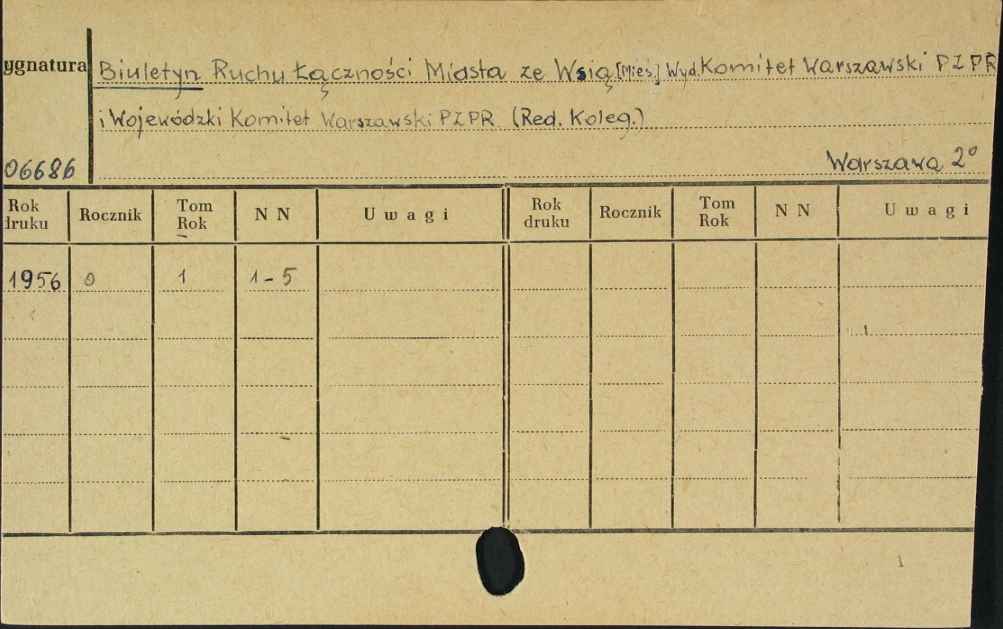 ygnatura
Biuletyn Ruchu Łączności Miasta ze Wsią [Mies.] Wyd. Komitet Warszawski PZPR
i Wojewódzki Komitet Warszawski PZPR. (Red. Koleg.)
06686
Warszawa 2°
Rok druku Rocznik Tom Rok N N Uwagi Rok druku Rocznik Tom Rok N N Uwagi
1956 0 1 1-5
1